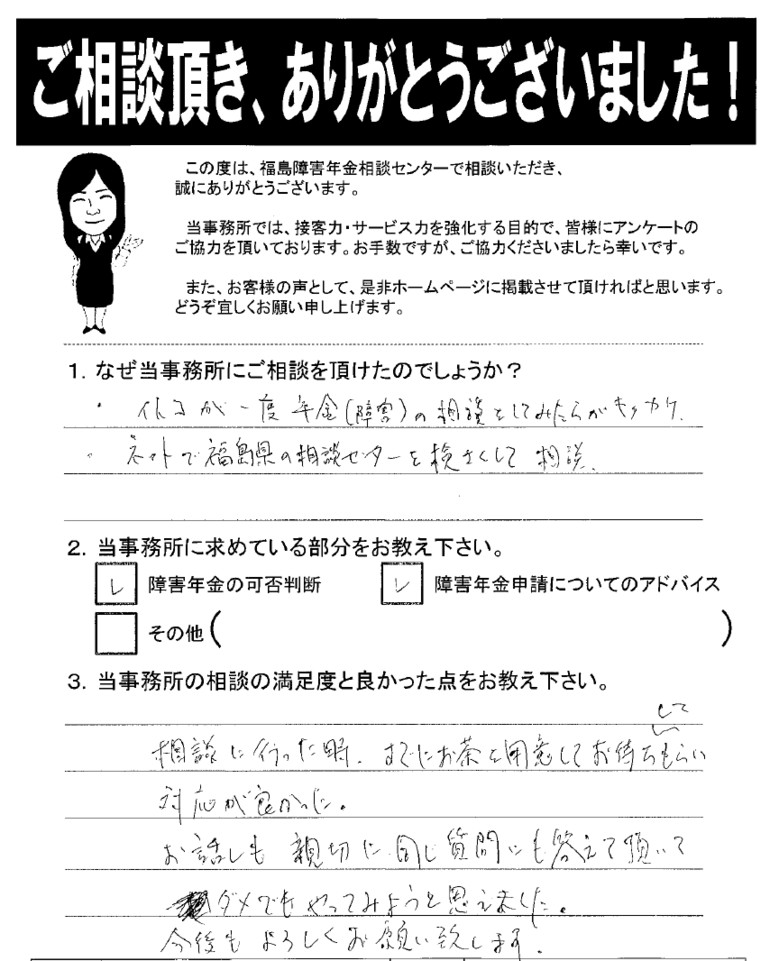 ご相談頂き、ありがとうございました！
この度は、福島障害年金相談センターで相談いただき、
誠にありがとうございます。
当事務所では、接客力・サービス力を強化する目的で、皆様にアンケートの
ご協力を頂いております。お手数ですが、ご協力くださいましたら幸いです。
また、お客様の声として、是非ホームページに掲載させて頂ければと思います。
どうぞ宜しくお願い申し上げます。
1. なぜ当事務所にご相談を頂けたのでしょうか？
・イトコが一度年金(障害)の相談をしてみたらがキッカケ.
・ネットで福島県の相談センターを検さくして相談.
2. 当事務所に求めている部分をお教え下さい。
レ 障害年金の可否判断 レ 障害年金申請についてのアドバイス
その他( )
3. 当事務所の相談の満足度と良かった点をお教え下さい。
相談に行った時、すでにお茶を用意してお待ちしてもらい
対応が良かった。
お話しも親切に同じ質問にも答えて頂いて
ダメでもやってみようと思えました。
今後もよろしくお願い致します.